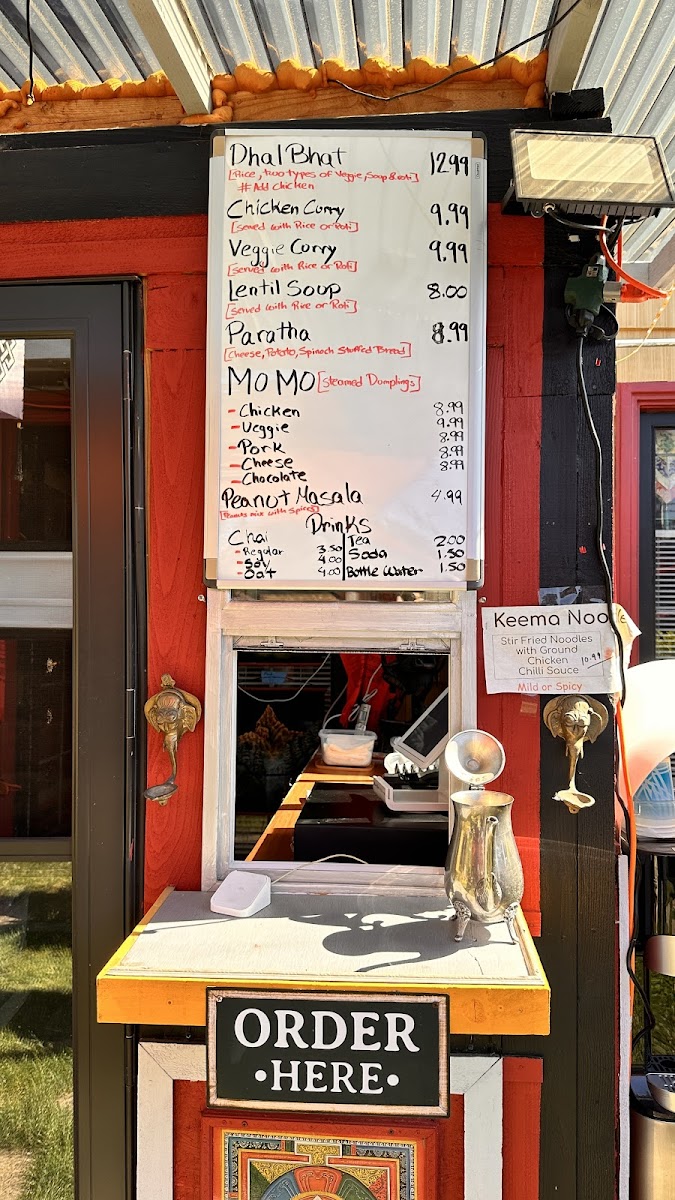 Dhal Bhat 12.99
[Rice, two types of Veggie, Soup & roti]
# Add Chicken
Chicken Curry 9.99
[served with Rice or Roti]
Veggie Curry 9.99
[served with Rice or Roti]
Lentil Soup 8.00
[served with Rice or Roti]
Paratha 8.99
[Cheese, Potato, Spinach Stuffed Bread]
MOMO [Steamed Dumplings]
- Chicken 8.99
- Veggie 9.99
- Pork 8.99
- Cheese 8.99
- Chocolate 8.99
Peanut Masala 4.99
[Peanuts mix with Spices]
Drinks
Chai
- Regular 3.50
- Soy 4.00
- Oat 4.00
Tea 2.00
Soda 1.50
Bottle Water 1.50
Keema Noo
Stir Fried Noodles
with Ground
Chicken 10.99
Chilli Sauce
Mild or Spicy
ORDER
•HERE•